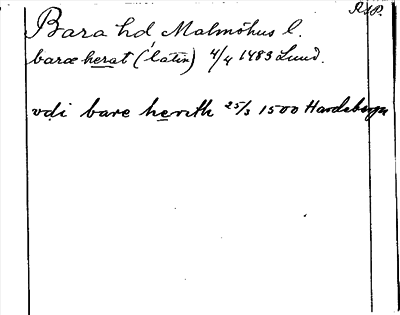 R.A.P.
Bara hd Malmöhus l.
baræ herat (latin) 4/4 1483 Lund.
vdi bare herith 25/3 1500 Hardeberga